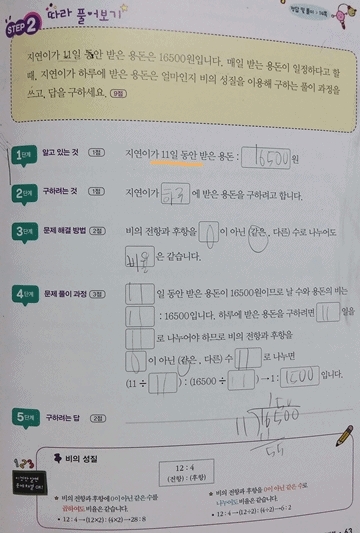 정답 및 풀이 : 14쪽
STEP 2 따라 풀어보기
지연이가 11일 동안 받은 용돈은 16500원입니다. 매일 받는 용돈이 일정하다고 할
때, 지연이가 하루에 받은 용돈은 얼마인지 비의 성질을 이용해 구하는 풀이 과정을
쓰고, 답을 구하세요. 9점
1단계 알고 있는 것 1점 지연이가 11일 동안 받은 용돈 : 16500 원
2단계 구하려는 것 1점 지연이가 하루 에 받은 용돈을 구하려고 합니다.
3단계 문제 해결 방법 2점 비의 전항과 후항을 0 이 아닌 (같은, 다른) 수로 나누어도
비율 은 같습니다.
4단계 문제 풀이 과정 3점 11 일 동안 받은 용돈이 16500원이므로 날 수와 용돈의 비는
11 : 16500 입니다. 하루에 받은 용돈을 구하려면 11 일을
11 로 나누어야 하므로 비의 전항과 후항을
0 이 아닌 (같은, 다른) 수 11 로 나누면
(11 ÷ 11) : (16500 ÷ 11) → 1 : 1500 입니다.
5단계 구하려는 답 2점
150
11 16500
11
55
123
이것만 알면
문제해결 OK!
비의 성질
12 : 4
(전항) : (후항)
★ 비의 전항과 후항에 0이 아닌 같은 수를
곱하여도 비율은 같습니다.
• 12 : 4 → (12×2) : (4×2) → 28 : 8
★ 비의 전항과 후항을 0이 아닌 같은 수로
나누어도 비율은 같습니다.
• 12 : 4 → (12÷2) : (4÷2) → 6 : 2
63